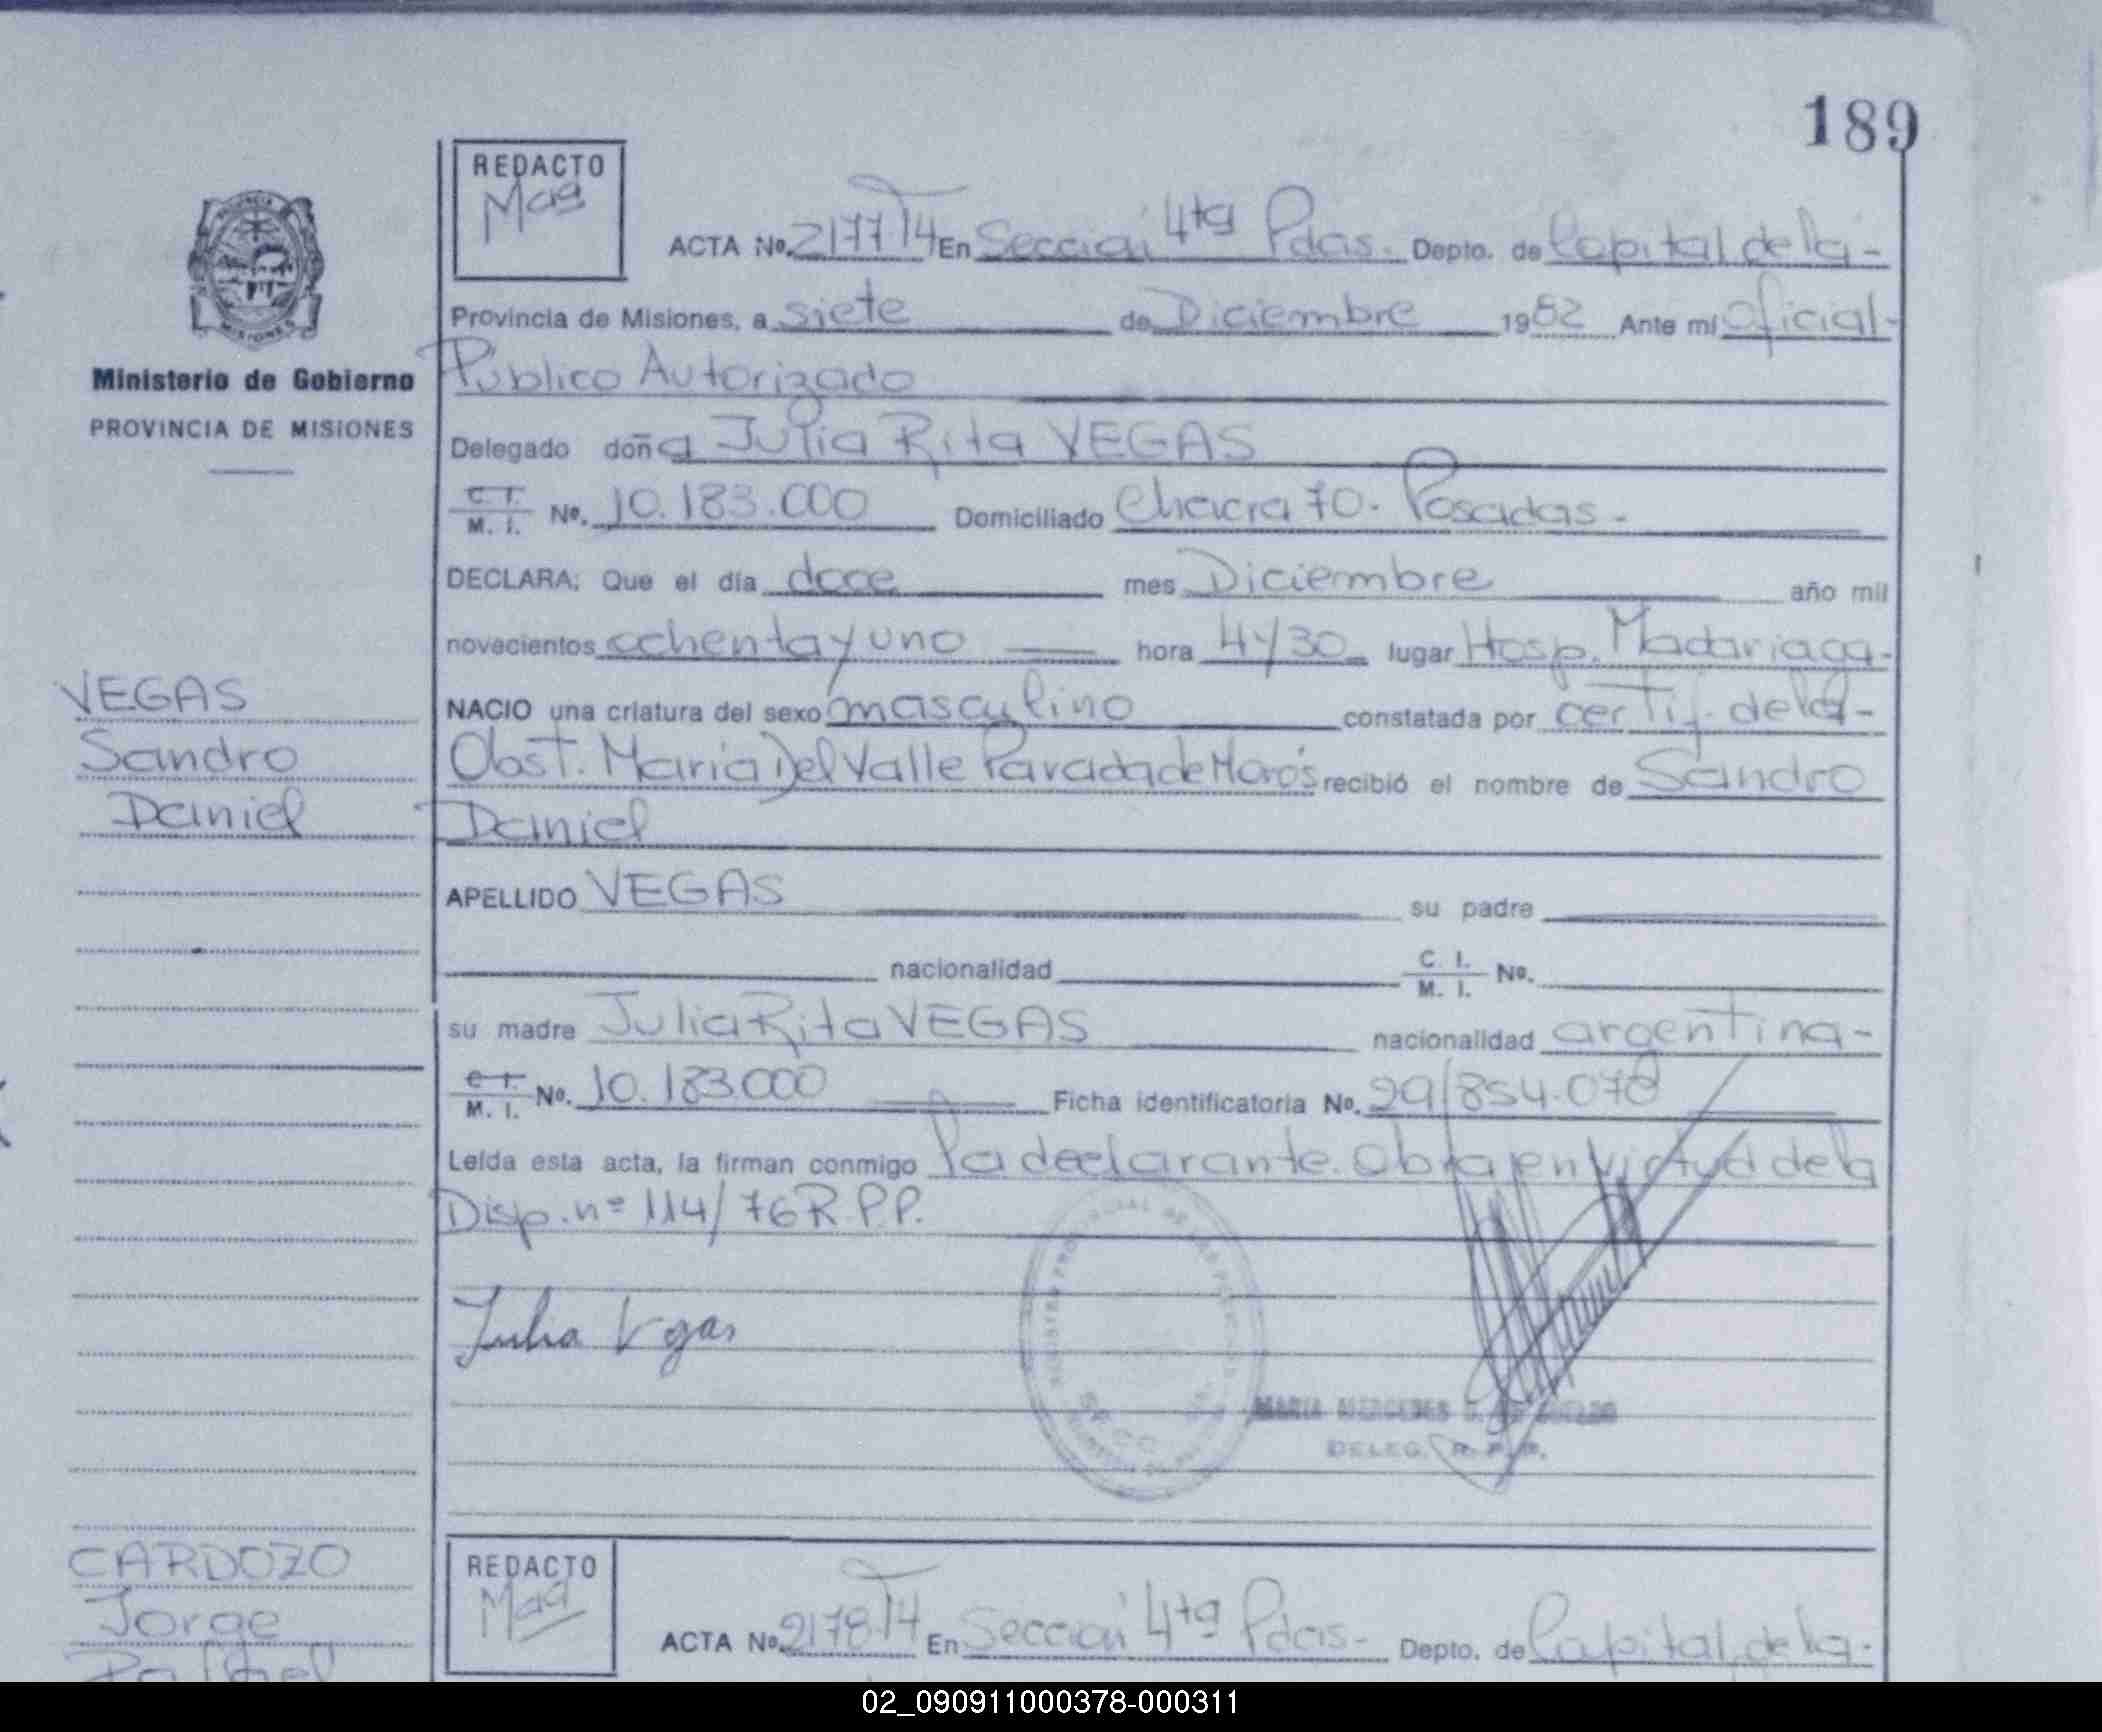 189
REDACTO
Mag
ACTA Nº 2177 T4 En Sección 4ta Pdas. Depto. de Capital de la-
Provincia de Misiones, a siete de Diciembre 1982 Ante mi Oficial-
Público Autorizado
Ministerio de Gobierno
PROVINCIA DE MISIONES
Delegado doña Julia Rita VEGAS
C. I. M. I. Nº. 10.183.000 Domiciliado Chacra 70. Posadas-
DECLARA: Que el día doce mes Diciembre año mil
novecientos ochenta y uno hora 4 y 30 lugar Hosp. Madariaga-
NACIO una criatura del sexo masculino constatada por certif. de la-
Obst. María Del Valle Parada de recibió el nombre de Sandro
Daniel
VEGAS
Sandro
Daniel
APELLIDO VEGAS su padre
nacionalidad C. I. M. I. Nº.
su madre Julia Rita VEGAS nacionalidad argentina-
C. I. M. I. Nº. 10.183000 Ficha identificatoria Nº. 29/854.078
Leída esta acta, la firman conmigo la declarante. Obra en virtud de la
Disp. nº 114/76 R.P.P.
Julia Vgas
MARIA MERCEDES
DELEG. R. P. P.
CARDOZO
Jorge
REDACTO
Mag
ACTA Nº 2178 T4 En Sección 4ta Pdas- Depto. de Capital de la-
02_090911000378-000311